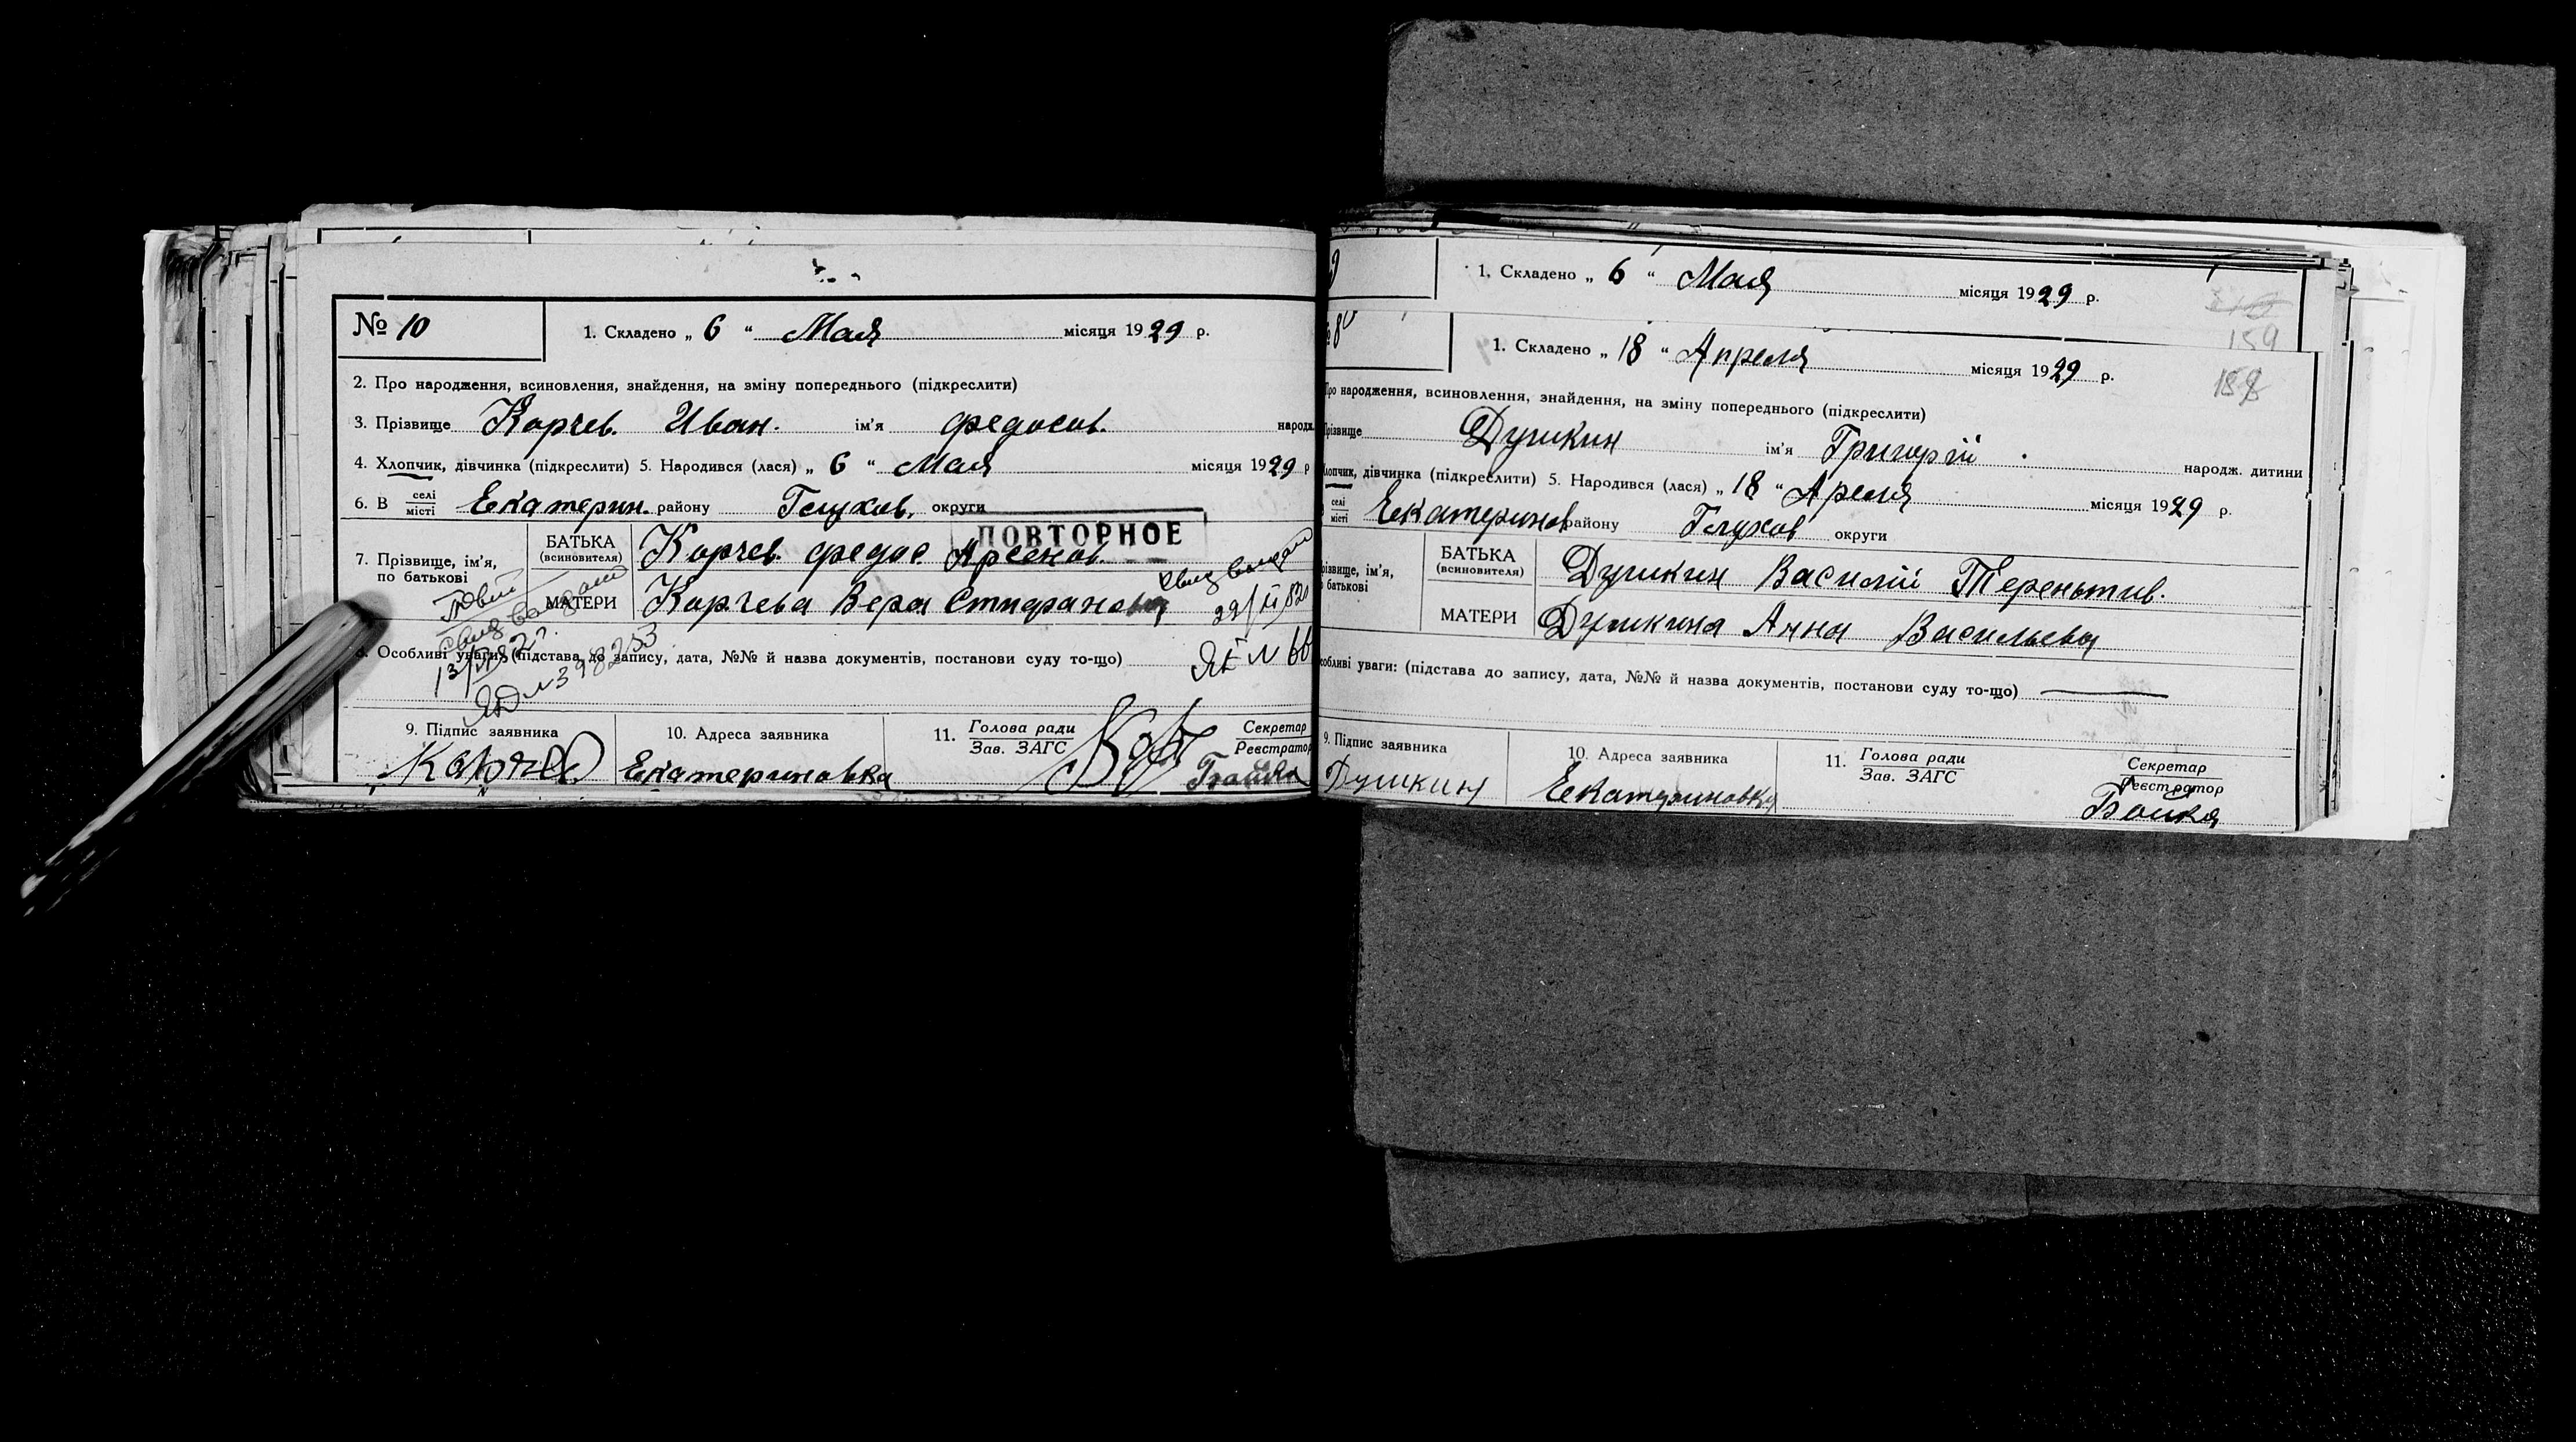 № 10
1. Складено „ 6 “ Мая місяця 1929 р.
2. Про народження, всиновлення, знайдення, на зміну попереднього (підкреслити)
3. Прізвище Корчев. Иван. ім'я Федосов. народж
4. Хлопчик, дівчинка (підкреслити) 5. Народився (лася) „ 6 “ Мая місяця 1929 р
6. В селі місті Екатерин. району Глухов. округи
ПОВТОРНОЕ
7. Прізвище, ім'я, по батькові
БАТЬКА (всиновителя) Корчев. Федос Арсенов.
МАТЕРИ Корчева Вера Стифановна
свид выдан
22/II 82
ЯЕ № 66
Повт
свид выдано
13/ 82 г.
ЯД № 398253
8. Особливі уваги: (підстава до запису, дата, №№ й назва документів, постанови суду то-що)
9. Підпис заявника
Корчев
10. Адреса заявника
Екатериновка
11. Голова ради
Зав. ЗАГС
Секретар
Реєстратор
Бойка
1. Складено „ 6 “ Мая місяця 1929 р.
159
№ 8
1. Складено „ 18 “ Апреля місяця 1929 р.
158
Про народження, всиновлення, знайдення, на зміну попереднього (підкреслити)
Прізвище Душкин ім'я Григорій народж. дитини
Хлопчик, дівчинка (підкреслити) 5. Народився (лася) „ 18 “ Апреля місяця 1929 р.
селі місті Екатеринов району Глухов округи
різвище, ім'я, батькові
БАТЬКА (всиновителя) Душкин Василій Терентьив.
МАТЕРИ Душкина Анна Васильева
собливі уваги: (підстава до запису, дата, №№ й назва документів, постанови суду то-що)
9. Підпис заявника
Душкин
10. Адреса заявника
Екатериновка
11. Голова ради
Зав. ЗАГС
Секретар
Реєстратор
Бойка